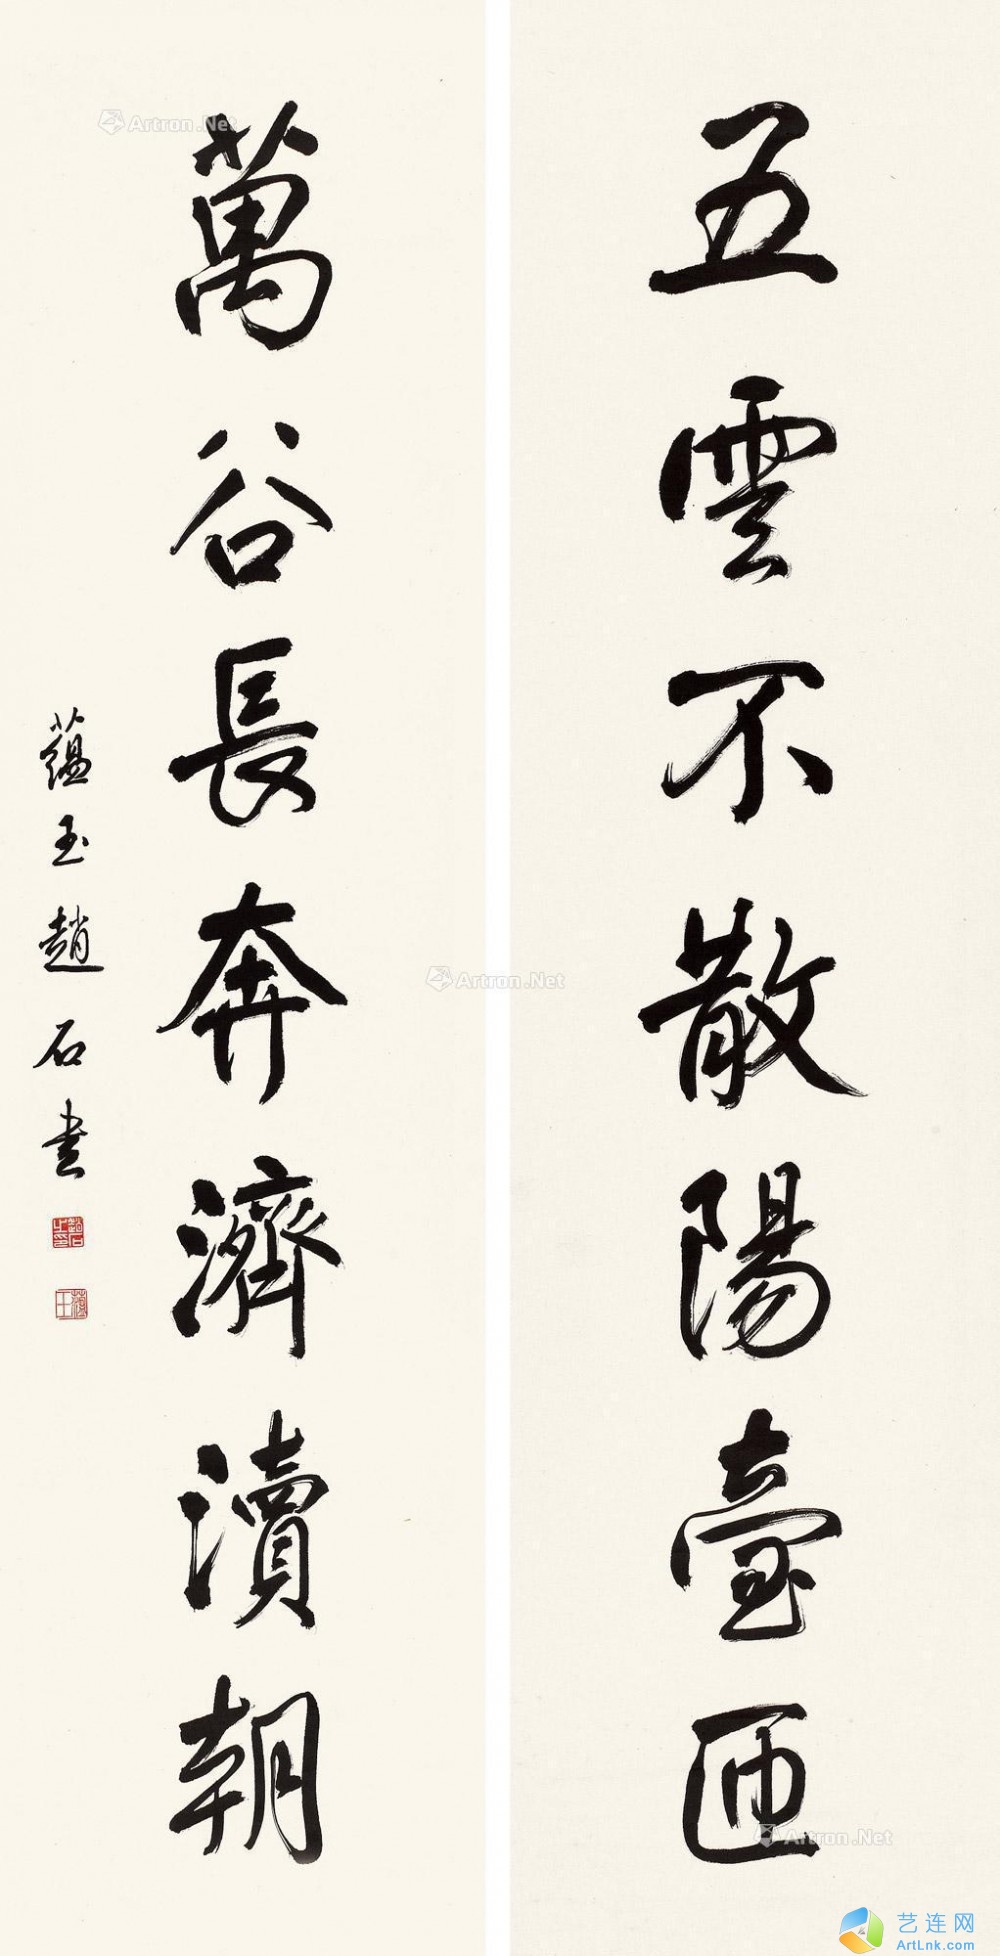 五雲不散陽臺匝
萬谷長奔濟瀆朝
蘊玉趙石書
趙石之印
蘊玉
Artron.Net
Artron.Net
Artron.Net
艺连网
ArtLnk.com